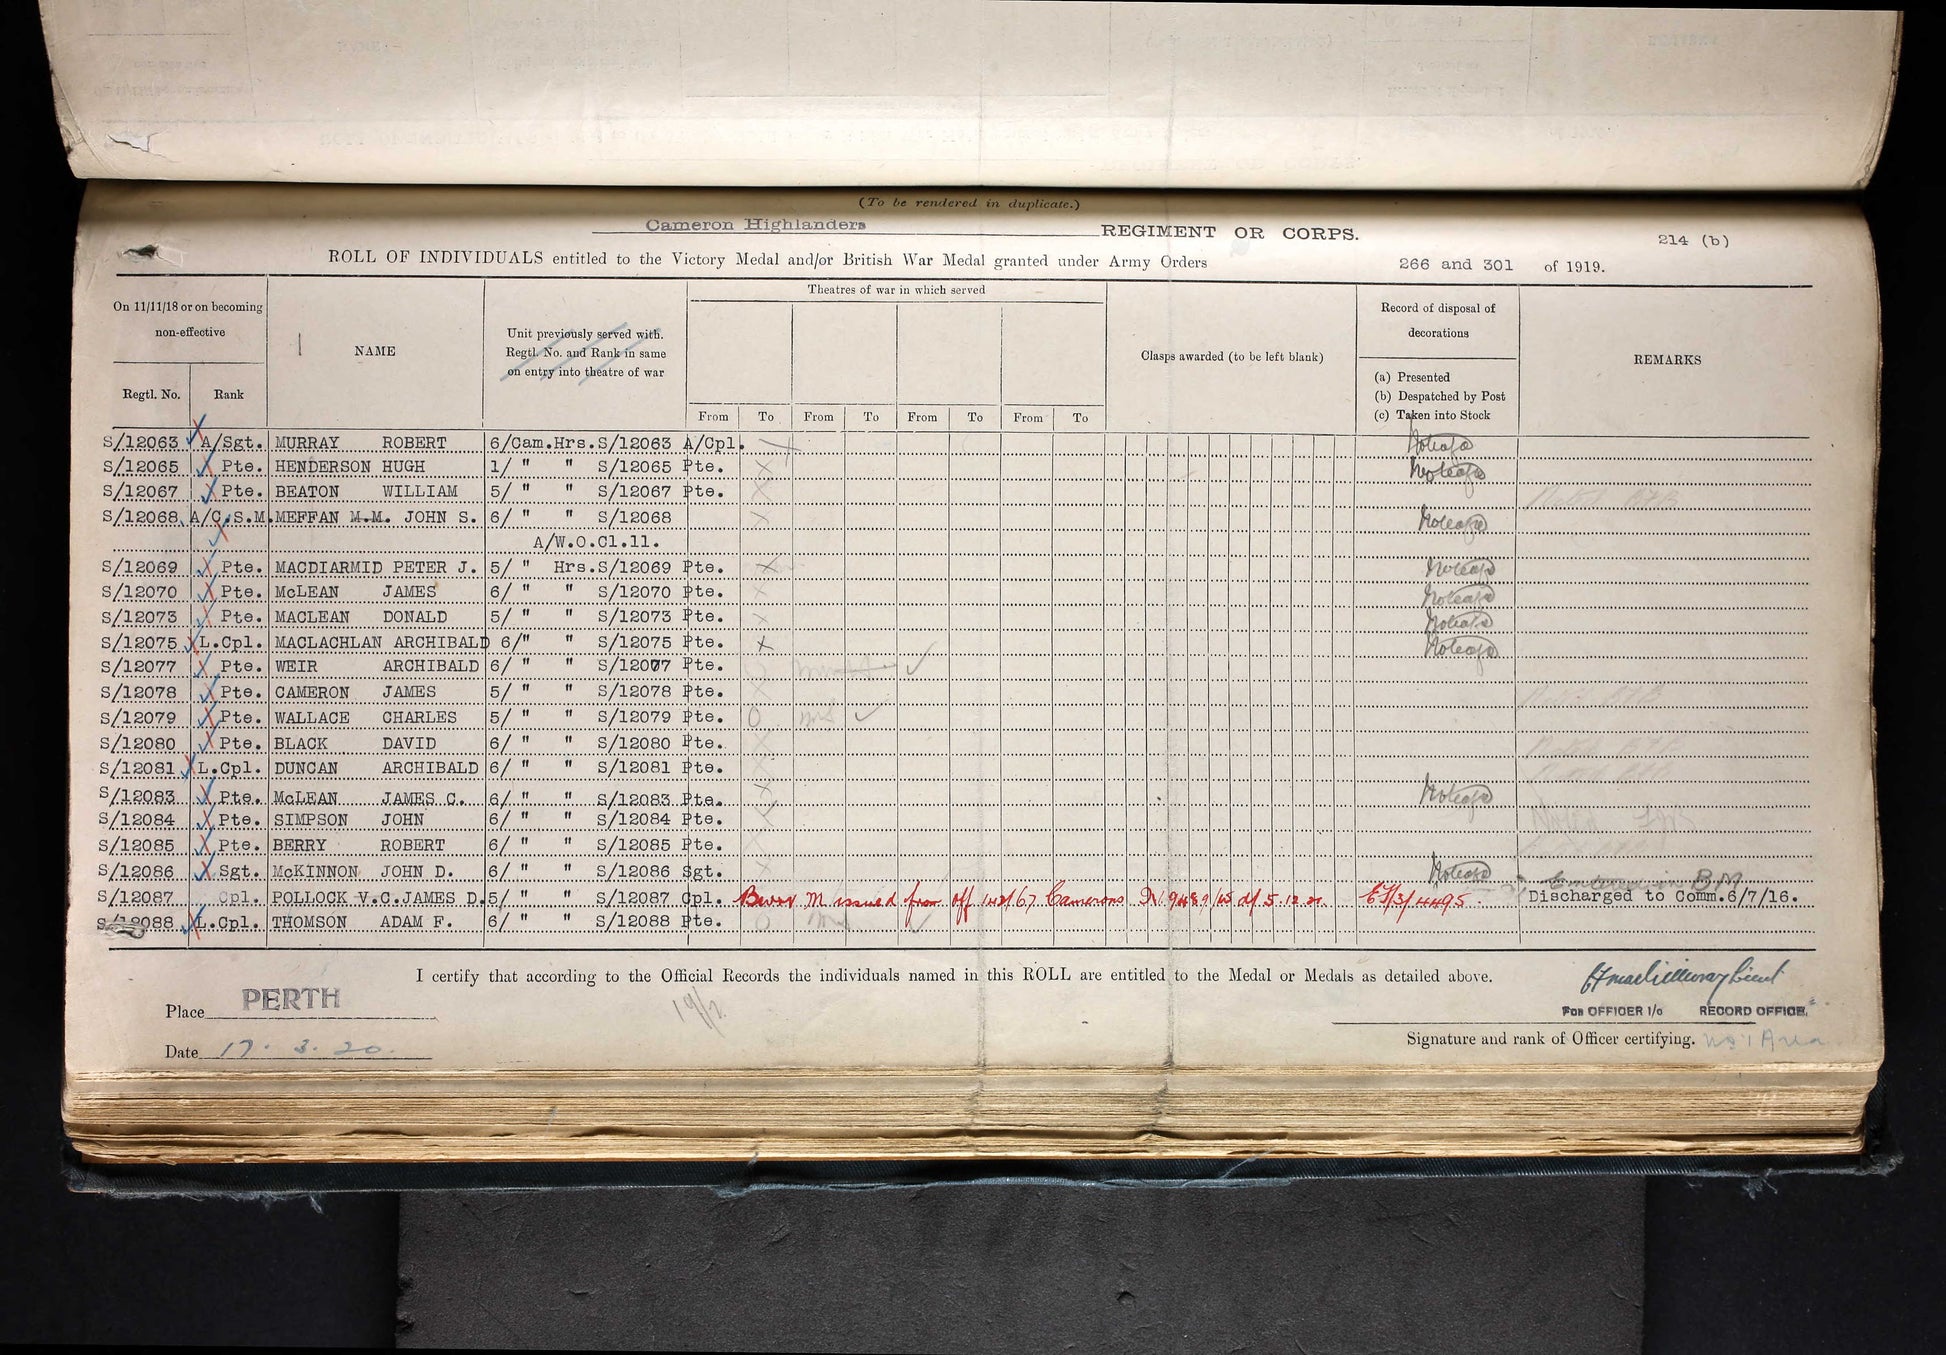 (To be rendered in duplicate.)
Cameron Highlanders REGIMENT OR CORPS. 214 (b)
ROLL OF INDIVIDUALS entitled to the Victory Medal and/or British War Medal granted under Army Orders 266 and 301 of 1919.
On 11/11/18 or on becoming non-effective
Regtl. No.
Rank
NAME
Unit previously served with.
Regtl. No. and Rank in same
on entry into theatre of war
Theatres of war in which served
From To From To From To From To
Clasps awarded (to be left blank)
Record of disposal of
decorations
(a) Presented
(b) Despatched by Post
(c) Taken into Stock
REMARKS
S/12063 A/Sgt. MURRAY ROBERT 6/Cam.Hrs.S/12063 A/Cpl.
S/12065 Pte. HENDERSON HUGH 1/ " " S/12065 Pte.
S/12067 Pte. BEATON WILLIAM 5/ " " S/12067 Pte.
S/12068 A/C.S.M. MEFFAN M.M. JOHN S. 6/ " " S/12068
A/W.O.Cl.11.
S/12069 Pte. MACDIARMID PETER J. 5/ " Hrs.S/12069 Pte.
S/12070 Pte. McLEAN JAMES 6/ " " S/12070 Pte.
S/12073 Pte. MACLEAN DONALD 5/ " " S/12073 Pte.
S/12075 L.Cpl. MACLACHLAN ARCHIBALD 6/" " S/12075 Pte.
S/12077 Pte. WEIR ARCHIBALD 6/ " " S/12077 Pte.
S/12078 Pte. CAMERON JAMES 5/ " " S/12078 Pte.
S/12079 Pte. WALLACE CHARLES 5/ " " S/12079 Pte.
S/12080 Pte. BLACK DAVID 6/ " " S/12080 Pte.
S/12081 L.Cpl. DUNCAN ARCHIBALD 6/ " " S/12081 Pte.
S/12083 Pte. McLEAN JAMES C. 6/ " " S/12083 Pte.
S/12084 Pte. SIMPSON JOHN 6/ " " S/12084 Pte.
S/12085 Pte. BERRY ROBERT 6/ " " S/12085 Pte.
S/12086 Sgt. McKINNON JOHN D. 6/ " " S/12086 Sgt. Entered in BM
S/12087 Cpl. POLLOCK V.C.JAMES D. 5/ " " S/12087 Cpl. M issued from Off Camerons Discharged to Comm.6/7/16.
S/12088 L.Cpl. THOMSON ADAM F. 6/ " " S/12088 Pte.
I certify that according to the Official Records the individuals named in this ROLL are entitled to the Medal or Medals as detailed above.
Place PERTH
FOR OFFICER I/c RECORD OFFICE,
Signature and rank of Officer certifying. No 1 Area
Date 17. 3. 20.